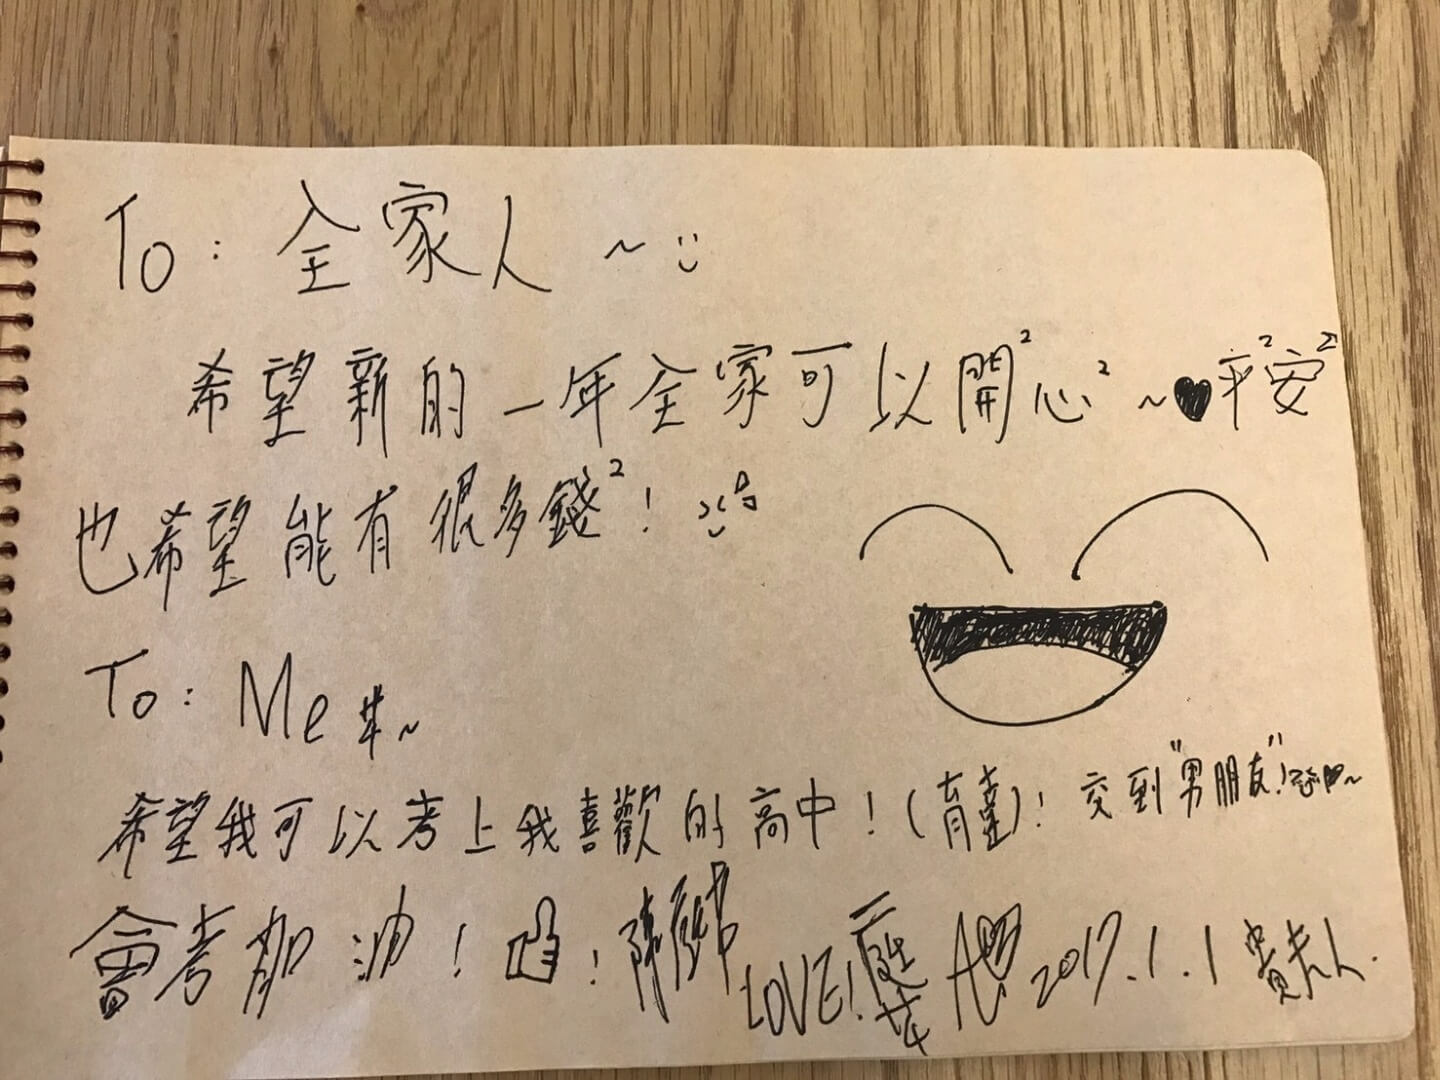 To：全家人 ~
希望新的一年全家可以開²心² ~ ♥平²安²
也希望能有很多錢²！
To：Me ~
希望我可以考上我喜歡的高中！(育達)！交到"男朋友"！♥~
會考加油！！陳 LOVE！ 2017.1.1 貴夫人.